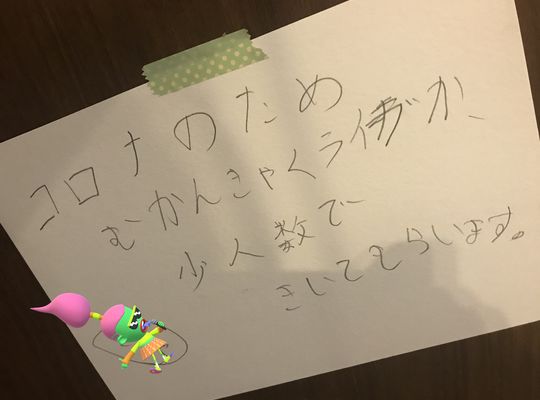 コロナのため
むかんきゃくライブか、
少人数で
きいてもらいます。